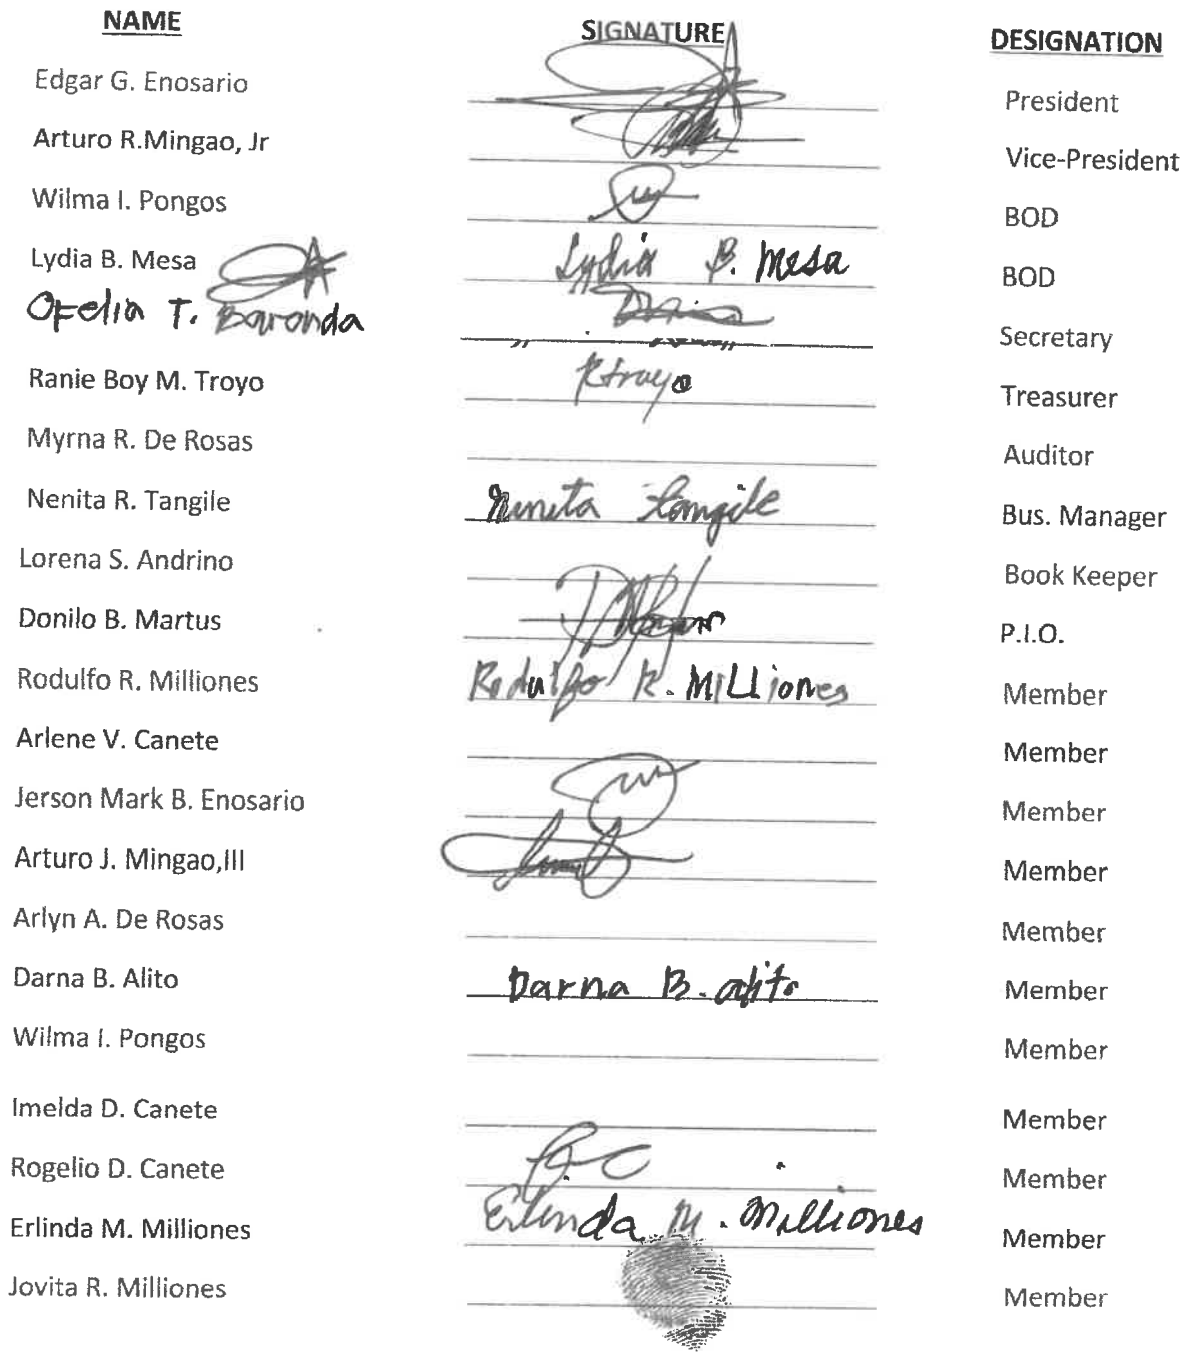 NAME SIGNATURE DESIGNATION
Edgar G. Enosario President
Arturo R.Mingao, Jr Vice-President
Wilma I. Pongos BOD
Lydia B. Mesa Lydia B. Mesa BOD
Ofelia T. Baronda Secretary
Ranie Boy M. Troyo Rtroyo Treasurer
Myrna R. De Rosas Auditor
Nenita R. Tangile Nenita Tangile Bus. Manager
Lorena S. Andrino Book Keeper
Donilo B. Martus P.I.O.
Rodulfo R. Milliones Rodulfo R. Milliones Member
Arlene V. Canete Member
Jerson Mark B. Enosario Member
Arturo J. Mingao,III Member
Arlyn A. De Rosas Member
Darna B. Alito Darna B. alito Member
Wilma I. Pongos Member
Imelda D. Canete Member
Rogelio D. Canete Member
Erlinda M. Milliones Erlinda M. Milliones Member
Jovita R. Milliones Member